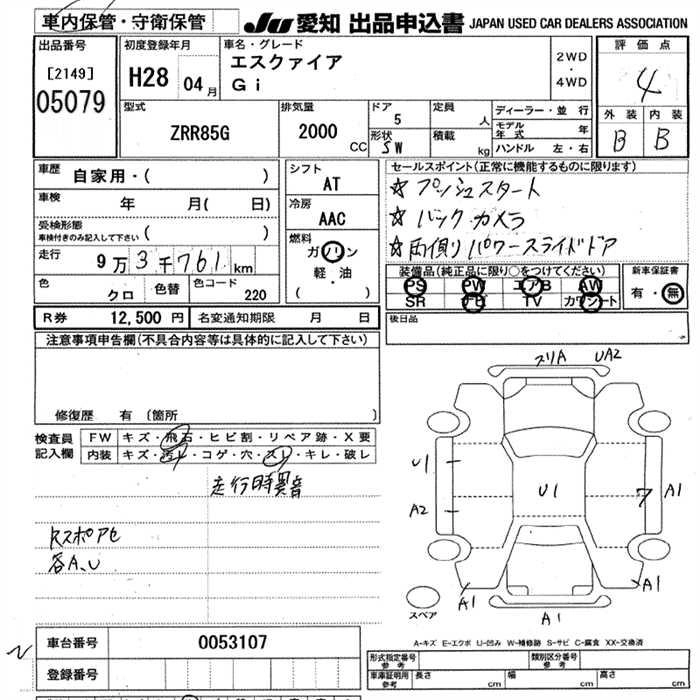 車内保管・守衛保管
JU 愛知 出品申込書 JAPAN USED CAR DEALERS ASSOCIATION
出品番号
[2149]
05079
初度登録年月
H28 04月
車名・グレード
エスクァイア
Gi
2WD
・
4WD
評価点
4
外装 内装
B B
型式
ZRR85G
排気量
2000 CC
ドア
5
形状
SW
定員
人
積載
kg
ディーラー・並行
モデル年式 年
ハンドル 左・右
車歴
自家用・( )
車検
年 月( 日)
受検形態
車検付きのみ記入して下さい ( )
走行
9万3千761km
色
クロ
色替
色コード
220
シフト
AT
冷房
AAC
燃料
ガソリン
・
軽・油
( )
セールスポイント(正常に機能するものに限ります)
☆プッシュスタート
☆バックカメラ
☆両側りパワースライドドア
装備品(純正品に限り○をつけてください)
PS PW エアB AW
SR ナビ TV カワシート
新車保証書
有・無
後日品
R券 12,500円 名変通知期限 月 日
注意事項申告欄(不具合内容等は具体的に記入して下さい)
修復歴 有 〔箇所
検査員記入欄
FW キズ・飛石・ヒビ割・リペア跡・X要
内装 キズ・汚レ・コゲ・穴・スレ・キレ・破レ
走行時異音
Rスポアセ
各A、U
スリA UA2
U1
A2
U1
7 A1
A1
A1
A1
スペア
A-キズ E-エクボ U-凹み W-補修跡 S-サビ C-腐食 XX-交換済
車台番号 0053107
登録番号
形式指定番号
参考
類別区分番号
参考
車庫証明用
参考
長さ cm 幅 cm 高さ cm